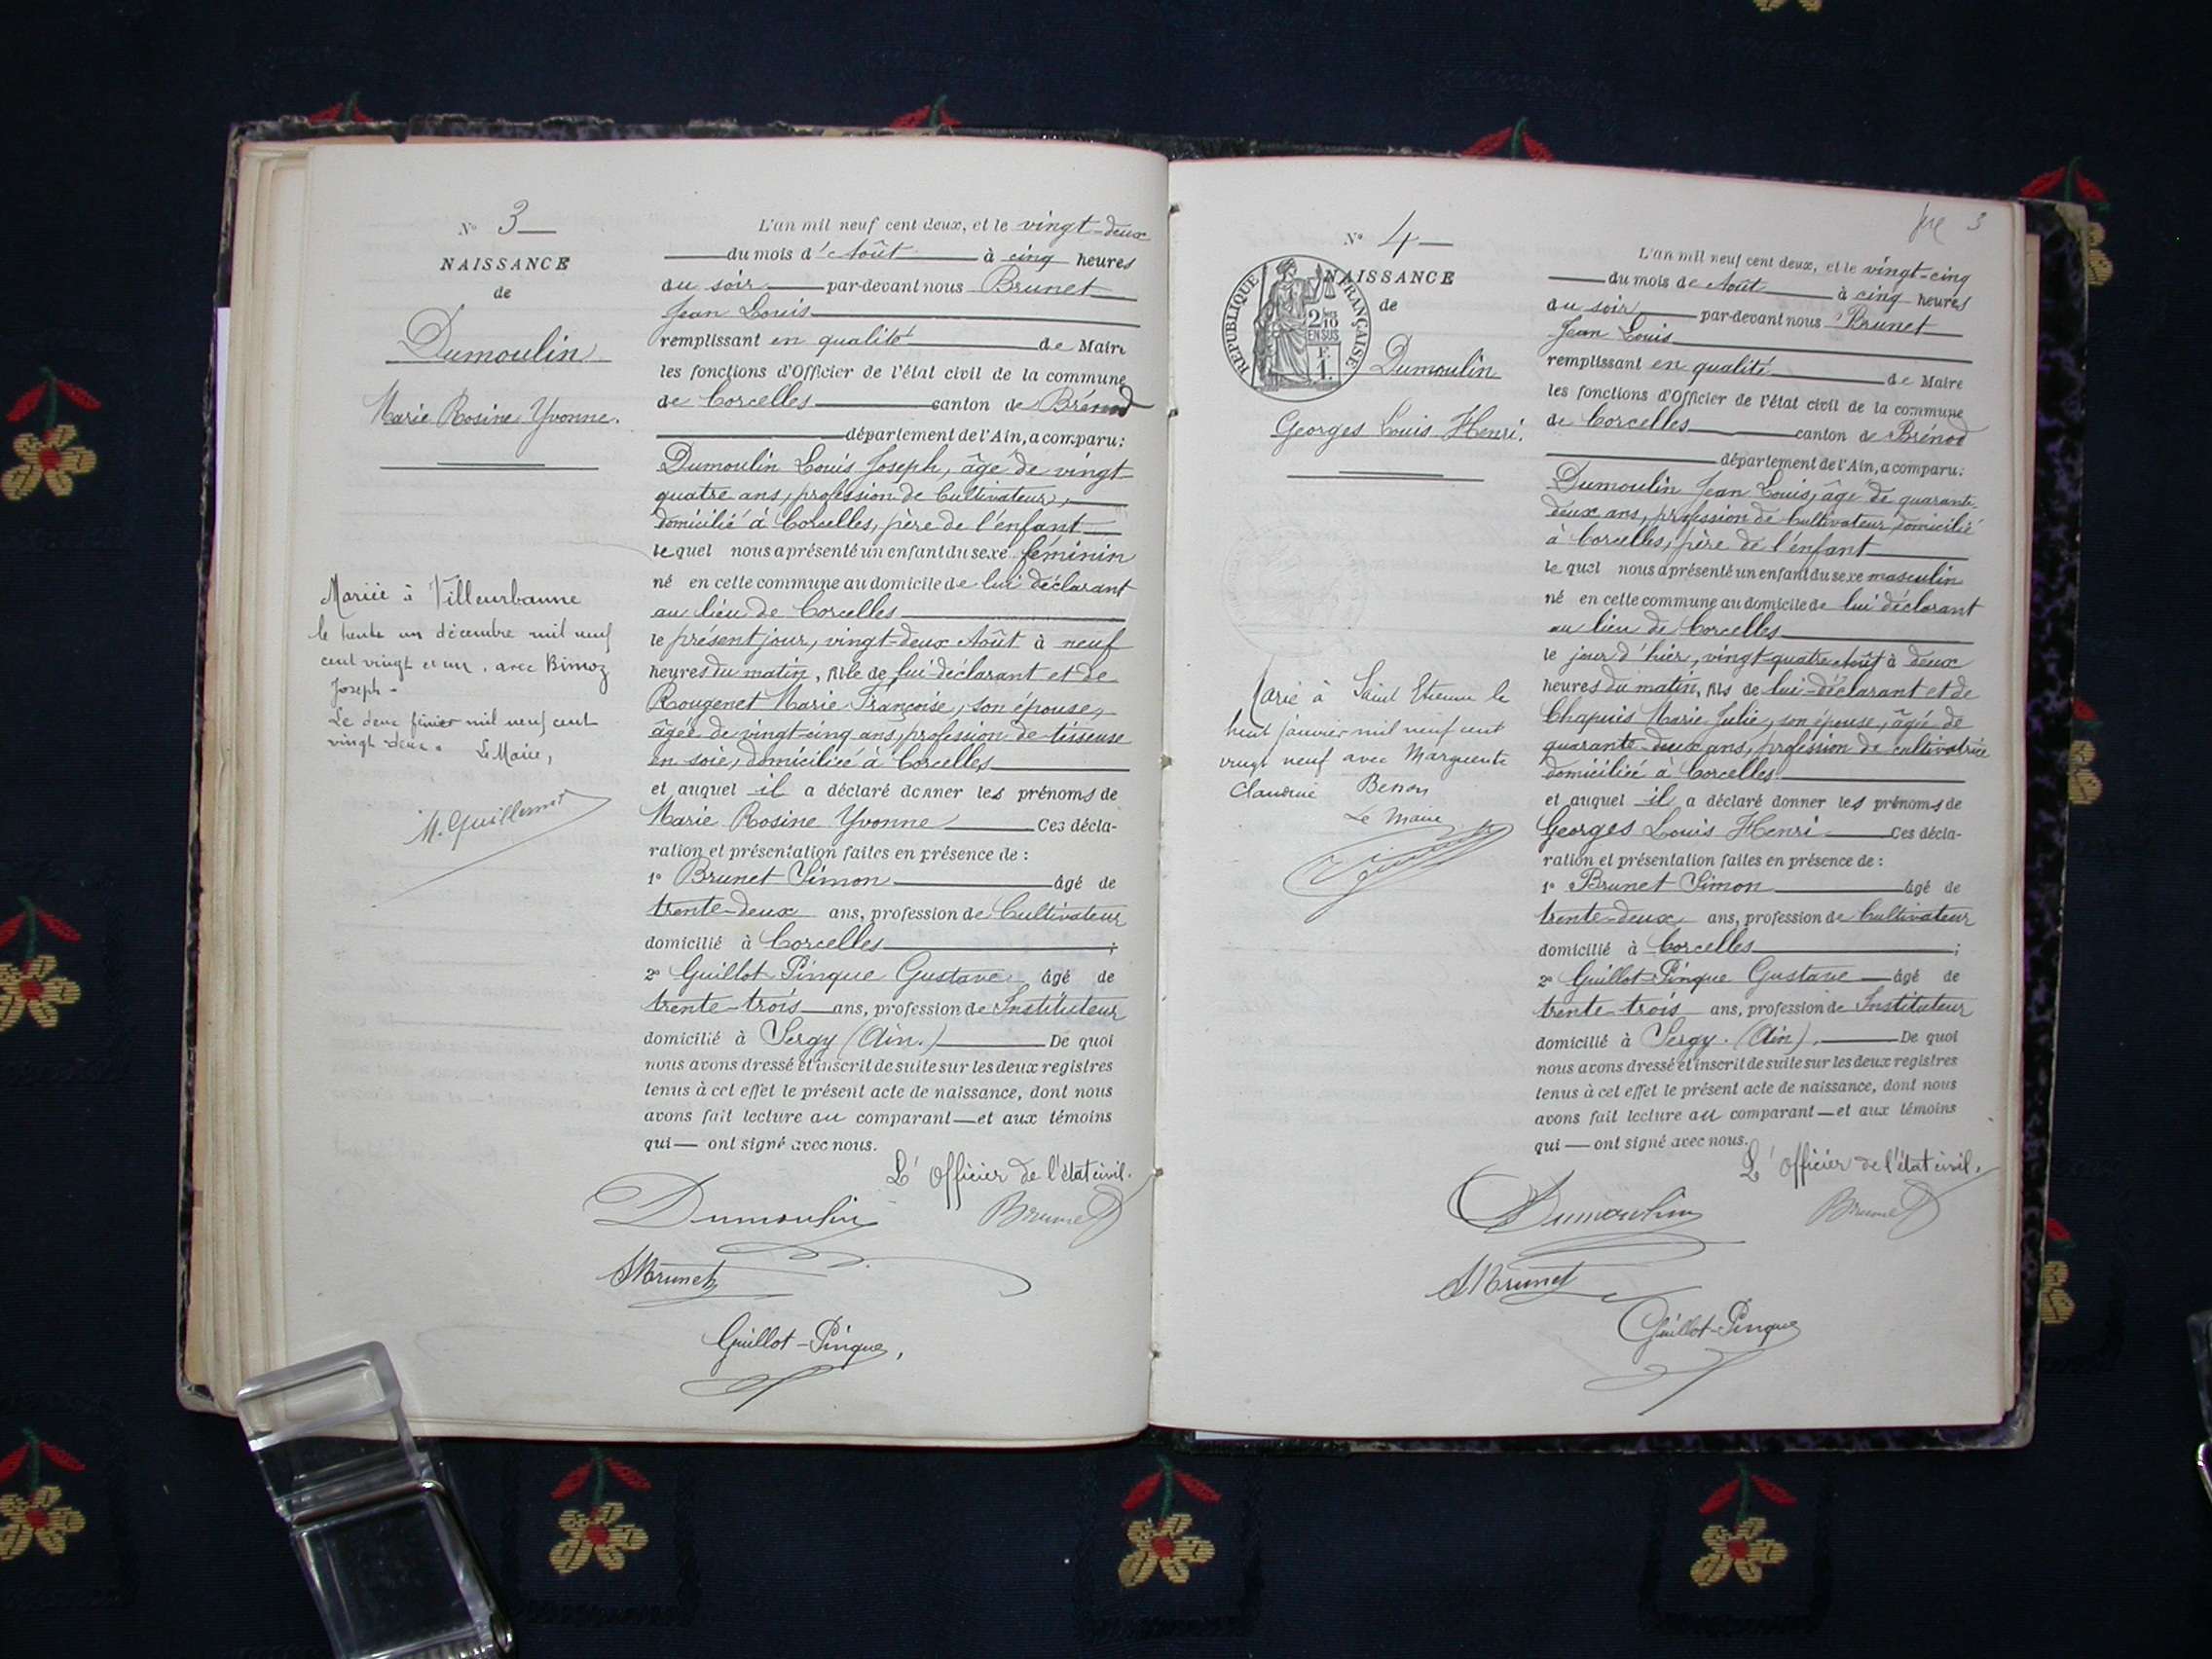 N° 3
NAISSANCE
de
Dumoulin
Marie Rosine Yvonne.
Mariée à Villeurbanne
le trente un décembre mil neuf
cent vingt et un, avec Binoz
Joseph -
Le deux février mil neuf cent
vingt deux. Le Maire,
M. Guillermet
L'an mil neuf cent deux, et le vingt-deux
du mois d'Août à cinq heures
du soir par-devant nous Brunet
Jean Louis
remplissant en qualité de Maire
les fonctions d'Officier de l'état civil de la commune
de Corcelles canton de Brénod
département de l'Ain, a comparu:
Dumoulin Louis Joseph, âgé de vingt
quatre ans, profession de Cultivateur,
domicilié à Corcelles, père de l'enfant
lequel nous a présenté un enfant du sexe féminin
né en cette commune au domicile de lui déclarant
au lieu de Corcelles
le présent jour, vingt-deux Août à neuf
heures du matin, fille de lui-déclarant et de
Rougenet Marie Françoise, son épouse,
âgée de vingt-cinq ans, profession de tisseuse
en soie, domiciliée à Corcelles
et auquel il a déclaré donner les prénoms de
Marie Rosine Yvonne Ces décla-
ration et présentation faites en présence de :
1° Brunet Simon âgé de
trente-deux ans, profession de Cultivateur
domicilié à Corcelles ;
2° Guillot-Pinque Gustave âgé de
trente-trois ans, profession de Instituteur
domicilié à Sergy (Ain.) De quoi
nous avons dressé et inscrit de suite sur les deux registres
tenus à cet effet le présent acte de naissance, dont nous
avons fait lecture au comparant et aux témoins
qui ont signé avec nous.
L'Officier de l'état civil.
Dumoulin Brunet
S Brunet
Guillot-Pinque,
3
N° 4
NAISSANCE
de
RÉPUBLIQUE FRANÇAISE
2/10 EN SUS
Dumoulin
Georges Louis Henri.
Marié à Saint Etienne le
huit janvier mil neuf cent
vingt neuf avec Marguerite
Claudine
Le Maire
L'an mil neuf cent deux, et le vingt-cinq
du mois de Août à cinq heures
du soir par-devant nous Brunet
Jean Louis
remplissant en qualité de Maire
les fonctions d'Officier de l'état civil de la commune
de Corcelles canton de Brénod
département de l'Ain, a comparu:
Dumoulin Jean Louis, âgé de quarante-
deux ans, profession de Cultivateur domicilié
à Corcelles, père de l'enfant
lequel nous a présenté un enfant du sexe masculin
né en cette commune au domicile de lui déclarant
au lieu de Corcelles
le jour d'hier, vingt-quatre Août à deux
heures du matin, fils de lui-déclarant et de
Chapuis Marie Julie, son épouse, âgée de
quarante-deux ans, profession de cultivatrice
domiciliée à Corcelles
et auquel il a déclaré donner les prénoms de
Georges Louis Henri Ces décla-
ration et présentation faites en présence de :
1° Brunet Simon âgé de
trente-deux ans, profession de Cultivateur
domicilié à Corcelles ;
2° Guillot-Pinque Gustave âgé de
trente-trois ans, profession de Instituteur
domicilié à Sergy. (Ain). De quoi
nous avons dressé et inscrit de suite sur les deux registres
tenus à cet effet le présent acte de naissance, dont nous
avons fait lecture au comparant et aux témoins
qui ont signé avec nous.
L'Officier de l'état civil.
Dumoulin Brunet
S Brunet
Guillot-Pinque